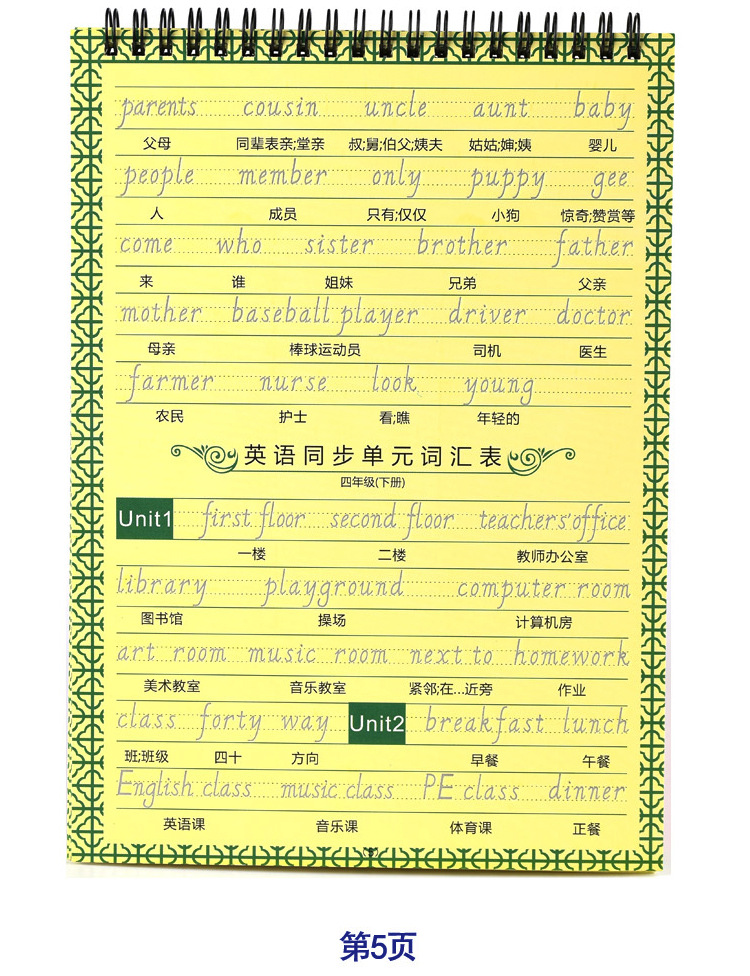 parents cousin uncle aunt baby
父母 同辈表亲;堂亲 叔;舅;伯父;姨夫 姑姑;婶;姨 婴儿
people member only puppy gee
人 成员 只有;仅仅 小狗 惊奇;赞赏等
come who sister brother father
来 谁 姐妹 兄弟 父亲
mother baseball player driver doctor
母亲 棒球运动员 司机 医生
farmer nurse look young
农民 护士 看;瞧 年轻的
英语同步单元词汇表
四年级(下册)
Unit1 first floor second floor teachers'office
一楼 二楼 教师办公室
library playground computer room
图书馆 操场 计算机房
art room music room next to homework
美术教室 音乐教室 紧邻;在...近旁 作业
class forty way Unit2 breakfast lunch
班;班级 四十 方向 早餐 午餐
English class music class PE class dinner
英语课 音乐课 体育课 正餐
第5页